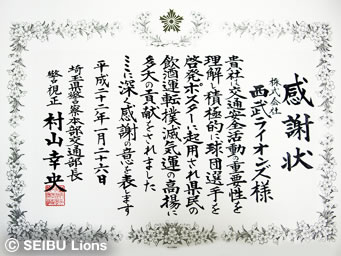 感謝状
株式会社
西武ライオンズ様
貴社は交通安全活動の重要性を
理解し積極的に球団選手を
啓発ポスターに起用され県民の
飲酒運転撲滅気運の高揚に
多大の貢献をされました
ここに深く感謝の意を表します
平成二十一年一月二十六日
埼玉県警察本部交通部長
警視正 村山幸央
© SEIBU Lions